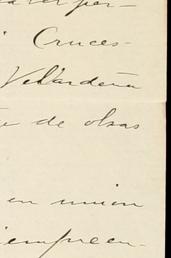 Cruces-
Velardeña
de obras
en union
empreen-